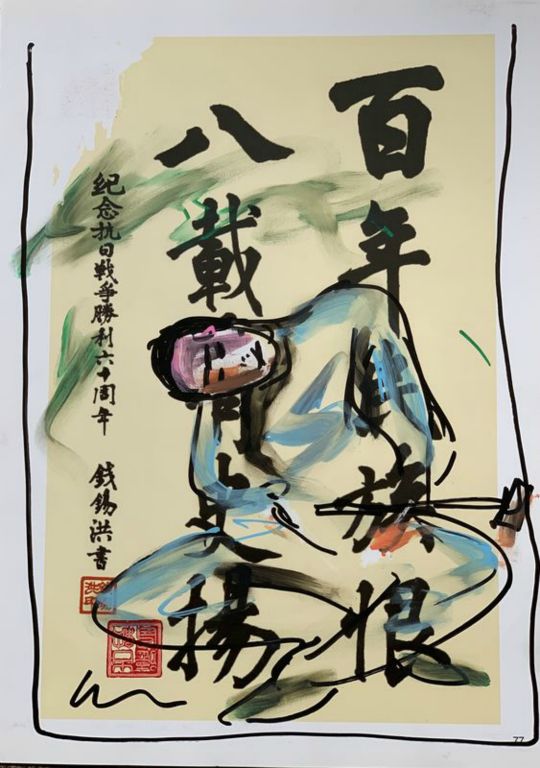 百年族恨
八載史揚
紀念抗日戰爭勝利六十周年
錢錫洪書
77